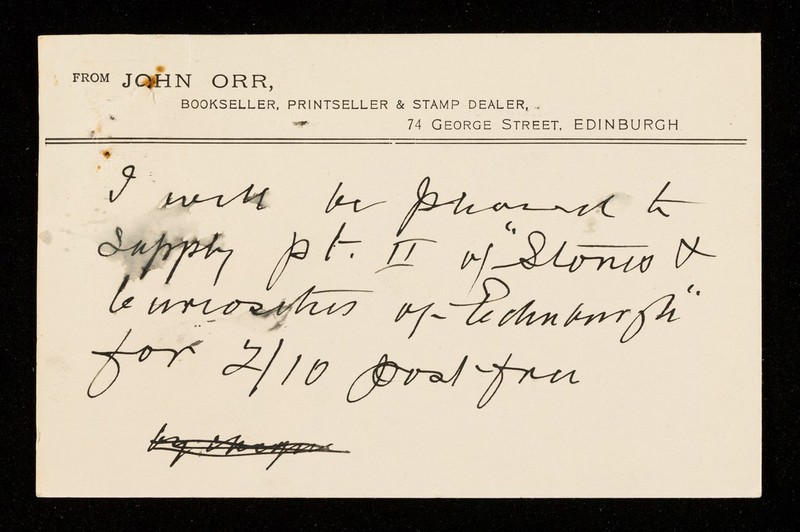 FROM JOHN ORR,
BOOKSELLER, PRINTSELLER & STAMP DEALER,
74 GEORGE STREET, EDINBURGH
I will be pleased to
supply pt. II of "Stones &
Curiosities of Edinburgh"
for 2/10 post-free